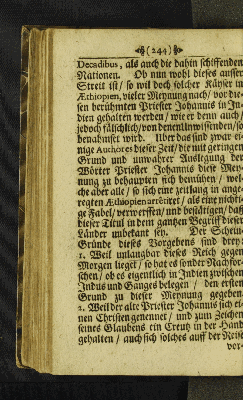 (244)
Decadibus, als auch die dahin schiffenden
Nationen. Ob nun wohl dieses ausser
Streit ist/ so wil doch solcher Käyser in
Æthiopien, vieler Meynung nach/ vor die-
sen berühmten Priester Johannis in In-
dien gehalten werden/ wie er denn auch/
jedoch fälschlich/ von denen Unwissenden/ so
benahmset wird. Uber das sind zwar ei-
nige Authores dieser Zeit/ die mit geringen
Grund und unwahrer Auslegung der
Wörter Priester Johannis diese Mey-
nung zu behaupten sich bemühen/ wel-
che aber alle/ so sich eine zeitlang in ange-
regten Æthiopien arrêtiret/ als eine nichti-
ge Fabel/ verwerffen/ und bestätigen/ daß
dieser Titul in dem gantzen Begriff dieser
Länder unbekant sey. Der Schein
Gründe dieses Vorgebens sind drey:
1. Weil unlangbar dieses Reich gegen
Morgen lieget/ so hat es sonder Nachfor-
schen/ ob es eigentlich in Indien zwischen
Indus und Ganges belegen/ den ersten
Grund zu dieser Meynung gegeben.
2. Weil der alte Priester Johannis sich ei-
nen Christen genennet/ und zum Zeichen
seines Glaubens ein Creutz in der Hand
gehalten/ auch sich solches auff der Reise
vor-